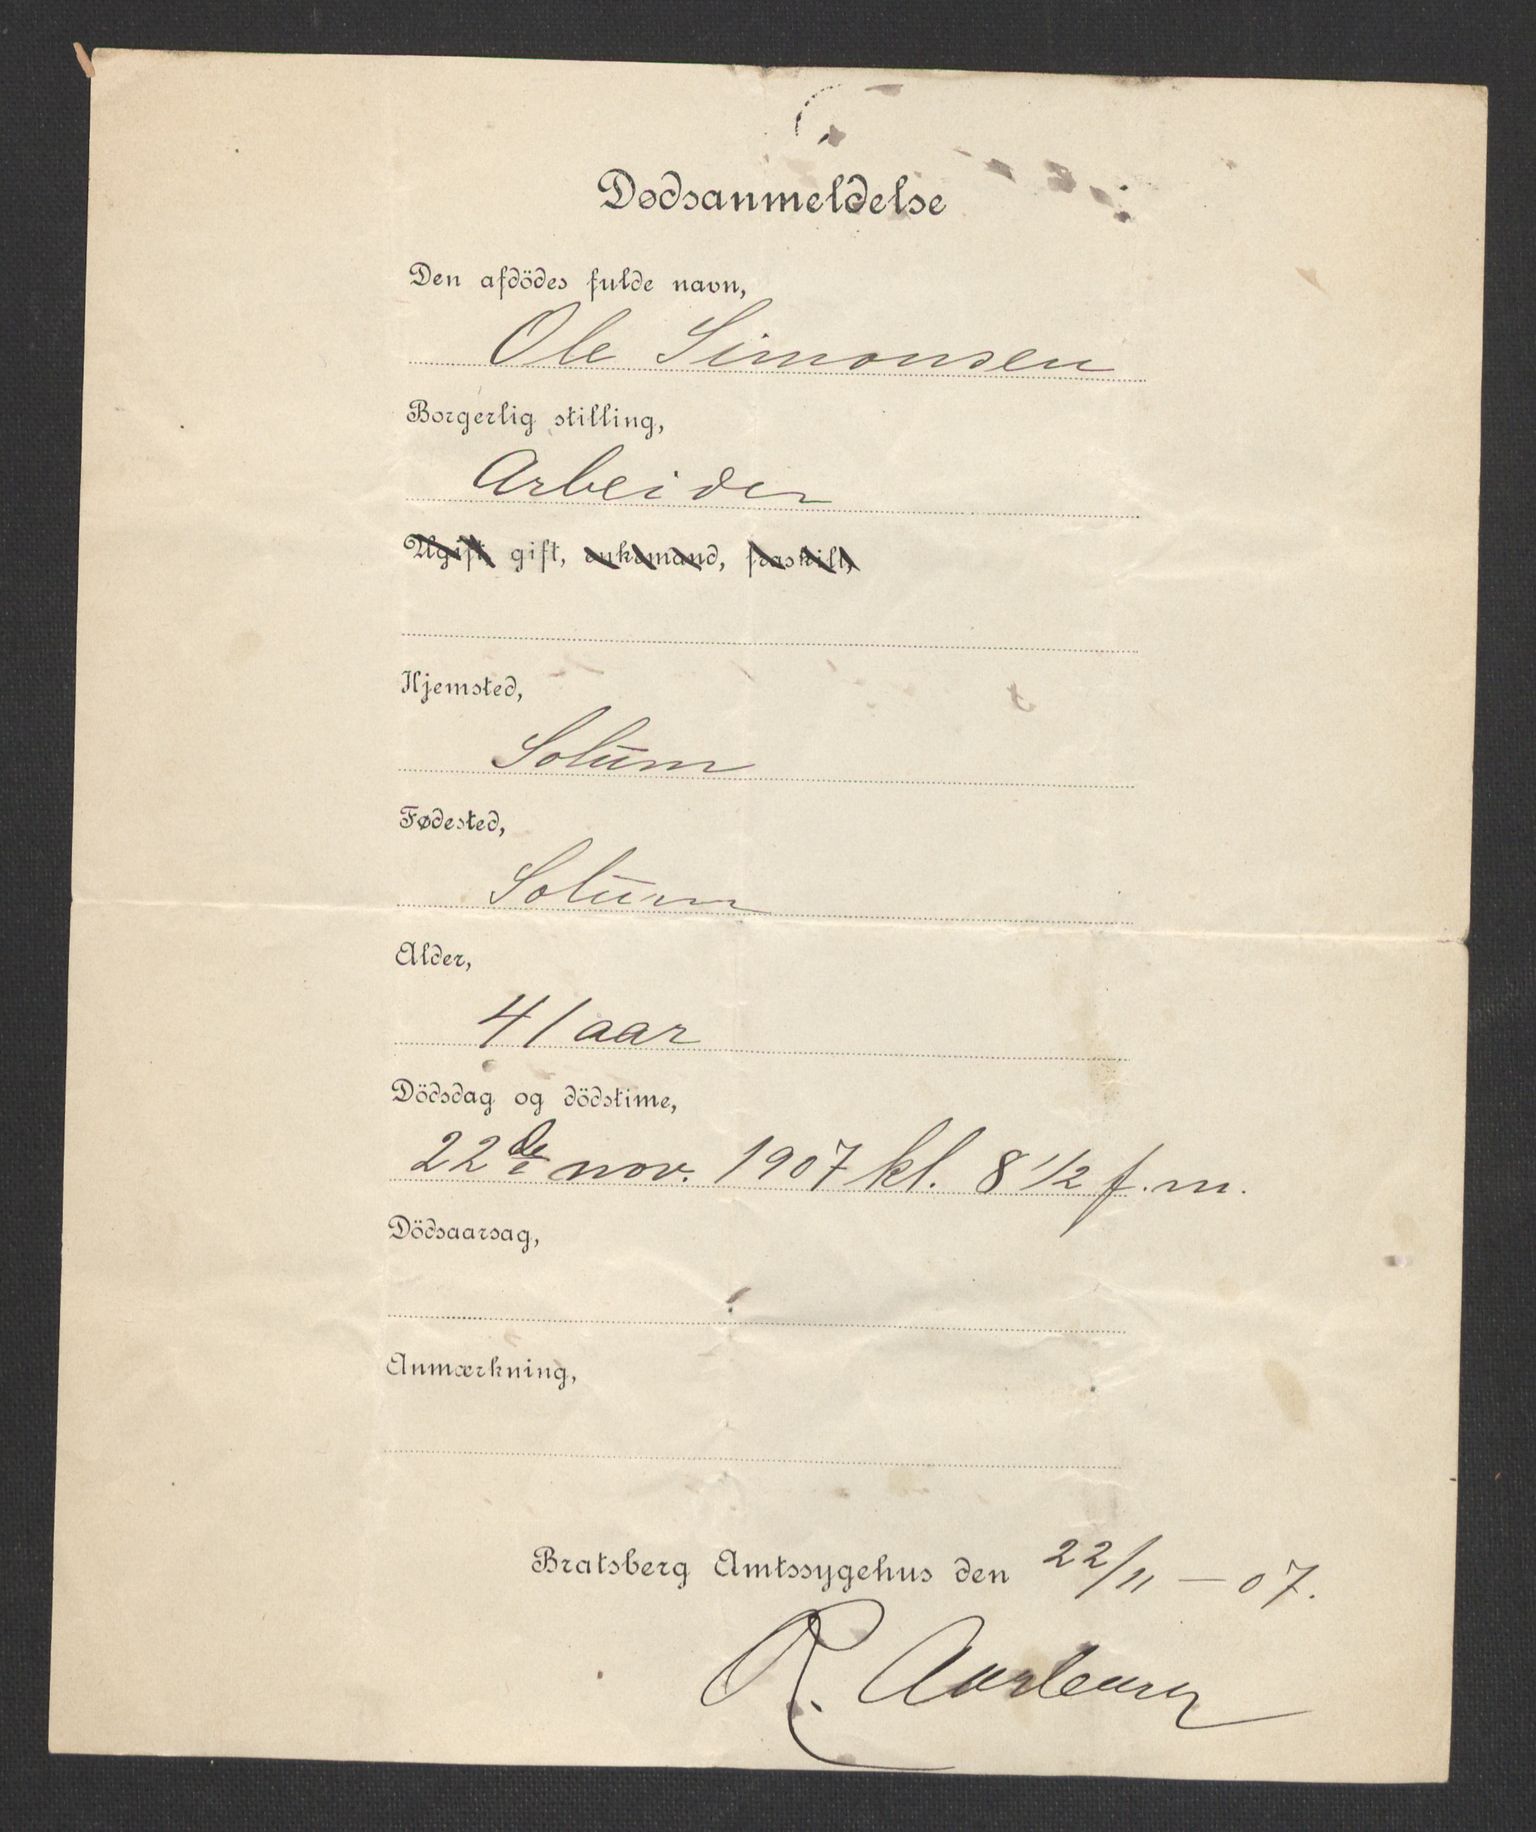 Dødsanmeldelse
Den afdödes fulde navn,
Ole Simonsen
Borgerlig stilling,
Arbeider
Ugift gift, enkemand, fraskilt,
Hjemsted,
Solum
Fødested,
Solum
Alder,
41 aar
Dödsdag og dödstime,
22de nov. 1907 kl. 8 1/2 f.m.
Dödsaarsag,
Anmærkning,
Bratsberg Amtssygehus den 22/11 – 07.
R.